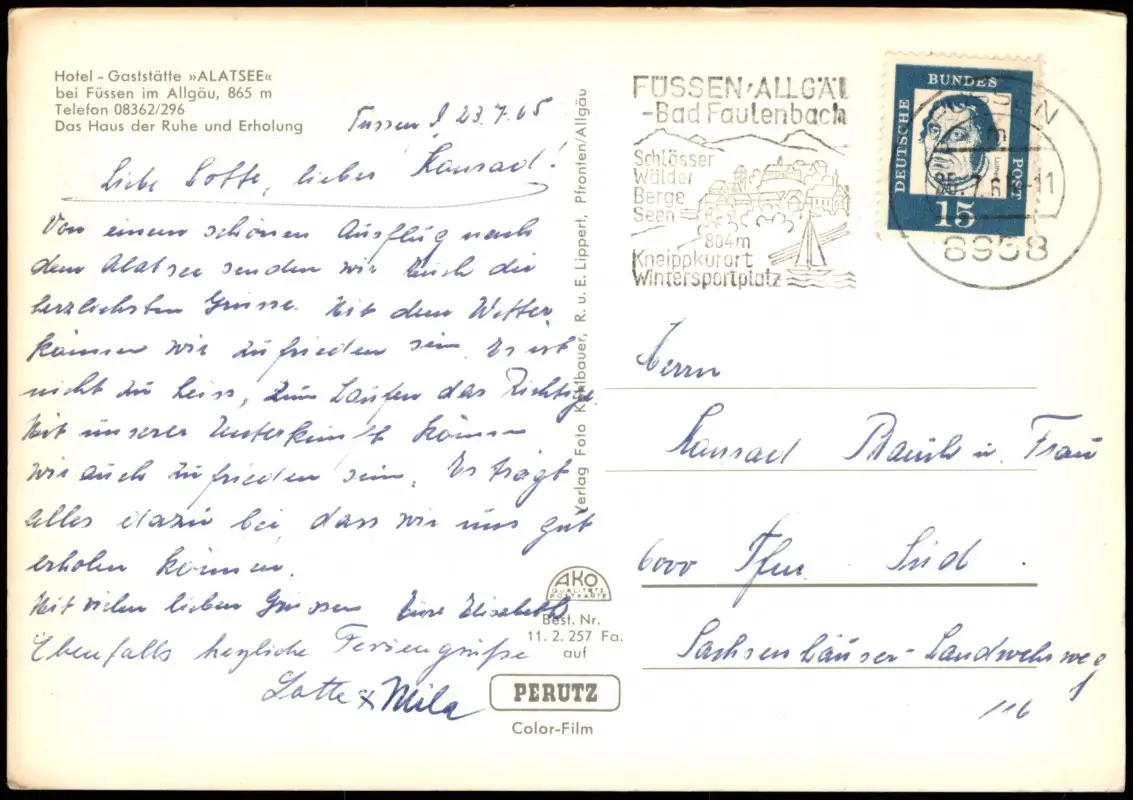 Hotel - Gaststätte »ALATSEE«
bei Füssen im Allgäu, 865 m
Telefon 08362/296
Das Haus der Ruhe und Erholung
Füssen 23.7.65
Liebe Lotte, lieber Konrad!
Von einem schönen Ausflug nach
dem Alatsee senden wir Euch die
herzlichsten Grüsse. Mit dem Wetter
können wir zufrieden sein. Es ist
nicht zu heiss, zum Laufen das Richtige.
Mit unserer Unterkunft können
wir auch zufrieden sein. Es trägt
alles dazu bei, dass wir uns gut
erholen können.
Mit vielen lieben Grüssen Eure Elisabeth
Ebenfalls herzliche Feriengrüße
Lotte & Mila
Verlag Foto Kohlbauer, R. u. E. Lippert, Pfronten/Allgäu
AKO
QUALITÄTS
POSTKARTE
Best. Nr.
11. 2. 257 Fa.
auf
PERUTZ
Color-Film
FÜSSEN/ALLGÄU
-Bad Faulenbach
Schlösser
Wälder
Berge
Seen
804m
Kneippkurort
Wintersportplatz
DEUTSCHE
BUNDES
POST
15
FÜSSEN
8958
Herrn
Konrad u. Frau
6000 Ffm. Süd
Sachsenhäuser-Landwehrweg
116